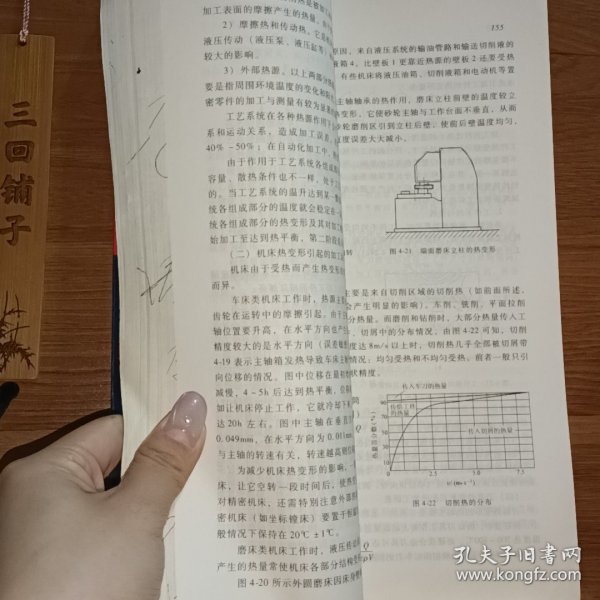 三回铺子
加工表面的摩擦产生的热量，
2）摩擦热和传动热。它是
液压传动（液压泵、液压缸等）
较大的影响。
3）外部热源。以上两部分热
要是指周围环境温度的变化和
密零件的加工与测量有较为显
工艺系统在各种热源作用下
系和运动关系，造成加工误差。
40%～50%；在自动化加工中，
由于作用于工艺系统各组成部
容量、散热条件也不一样，处于
的。当工艺系统的温升达到某一
统各组成部分的温度就会稳定在一
统各组成部分的热变形及其对加工
始加工至达到热平衡，第二阶段
（二）机床热变形引起的加工
机床由于受热而产生热变形
而异。
车床类机床工作时，热源主
齿轮在运转中的摩擦引起。由于
轴位置要升高，在水平方向也产
精度较大的是水平方向（误差敏
4-19表示主轴箱发热导致车床主
向位移的情况。图中位移在最初
减慢，4～5h后达到热平衡，位移
如让机床停止工作，它就冷却下
达20h左右。图中主轴在垂直
0.049mm，在水平方向为0.011m
与主轴的转速有关，转速越高则
为减少机床热变形的影响，
床，让它空转一段时间后，使热
对精密机床，还需特别注意外部热
密机床（如坐标镗床）要置于恒温
般情况下保持在20℃±1℃。
磨床类机床工作时，液压传动
产生的热量常使机床各部分结构变
图4-20所示外圆磨床因床身
155
原因，来自液压系统的输油管路和输送切削液的
液箱4，比壁板1更靠近热源的壁板2还要受热
有些机床将液压油箱、切削液箱和电动机等置
主轴轴承的热作用，磨床立柱前壁的温度较立
热变形，它使砂轮主轴与工作台面不垂直，从而
砂轮磨削区引到立柱后壁，使前后壁温度均匀，
直度误差大大减小。
图4-21 端面磨床立柱的热变形
主要是来自切削区域的切削热（如前面所述，
会产生明显的影响）。车削、铣削、平面拉削
分热量。而磨削和钻削时，大部分热量传入工
、切屑中的分布情况。由图4-22可知，切削
度达8m/s以上时，切削热几乎全部被切屑带
情况：均匀受热和不均匀受热。前者一般只引
状精度。
传入车刀的热量
传给工件的热量
传入切屑的热量
热量百分数（%）
90
70
50
30
10
0
2.5
5.0
7.5
v/(m·s⁻¹)
图4-22 切削热的分布
孔夫子旧书网
www.kongfz.com